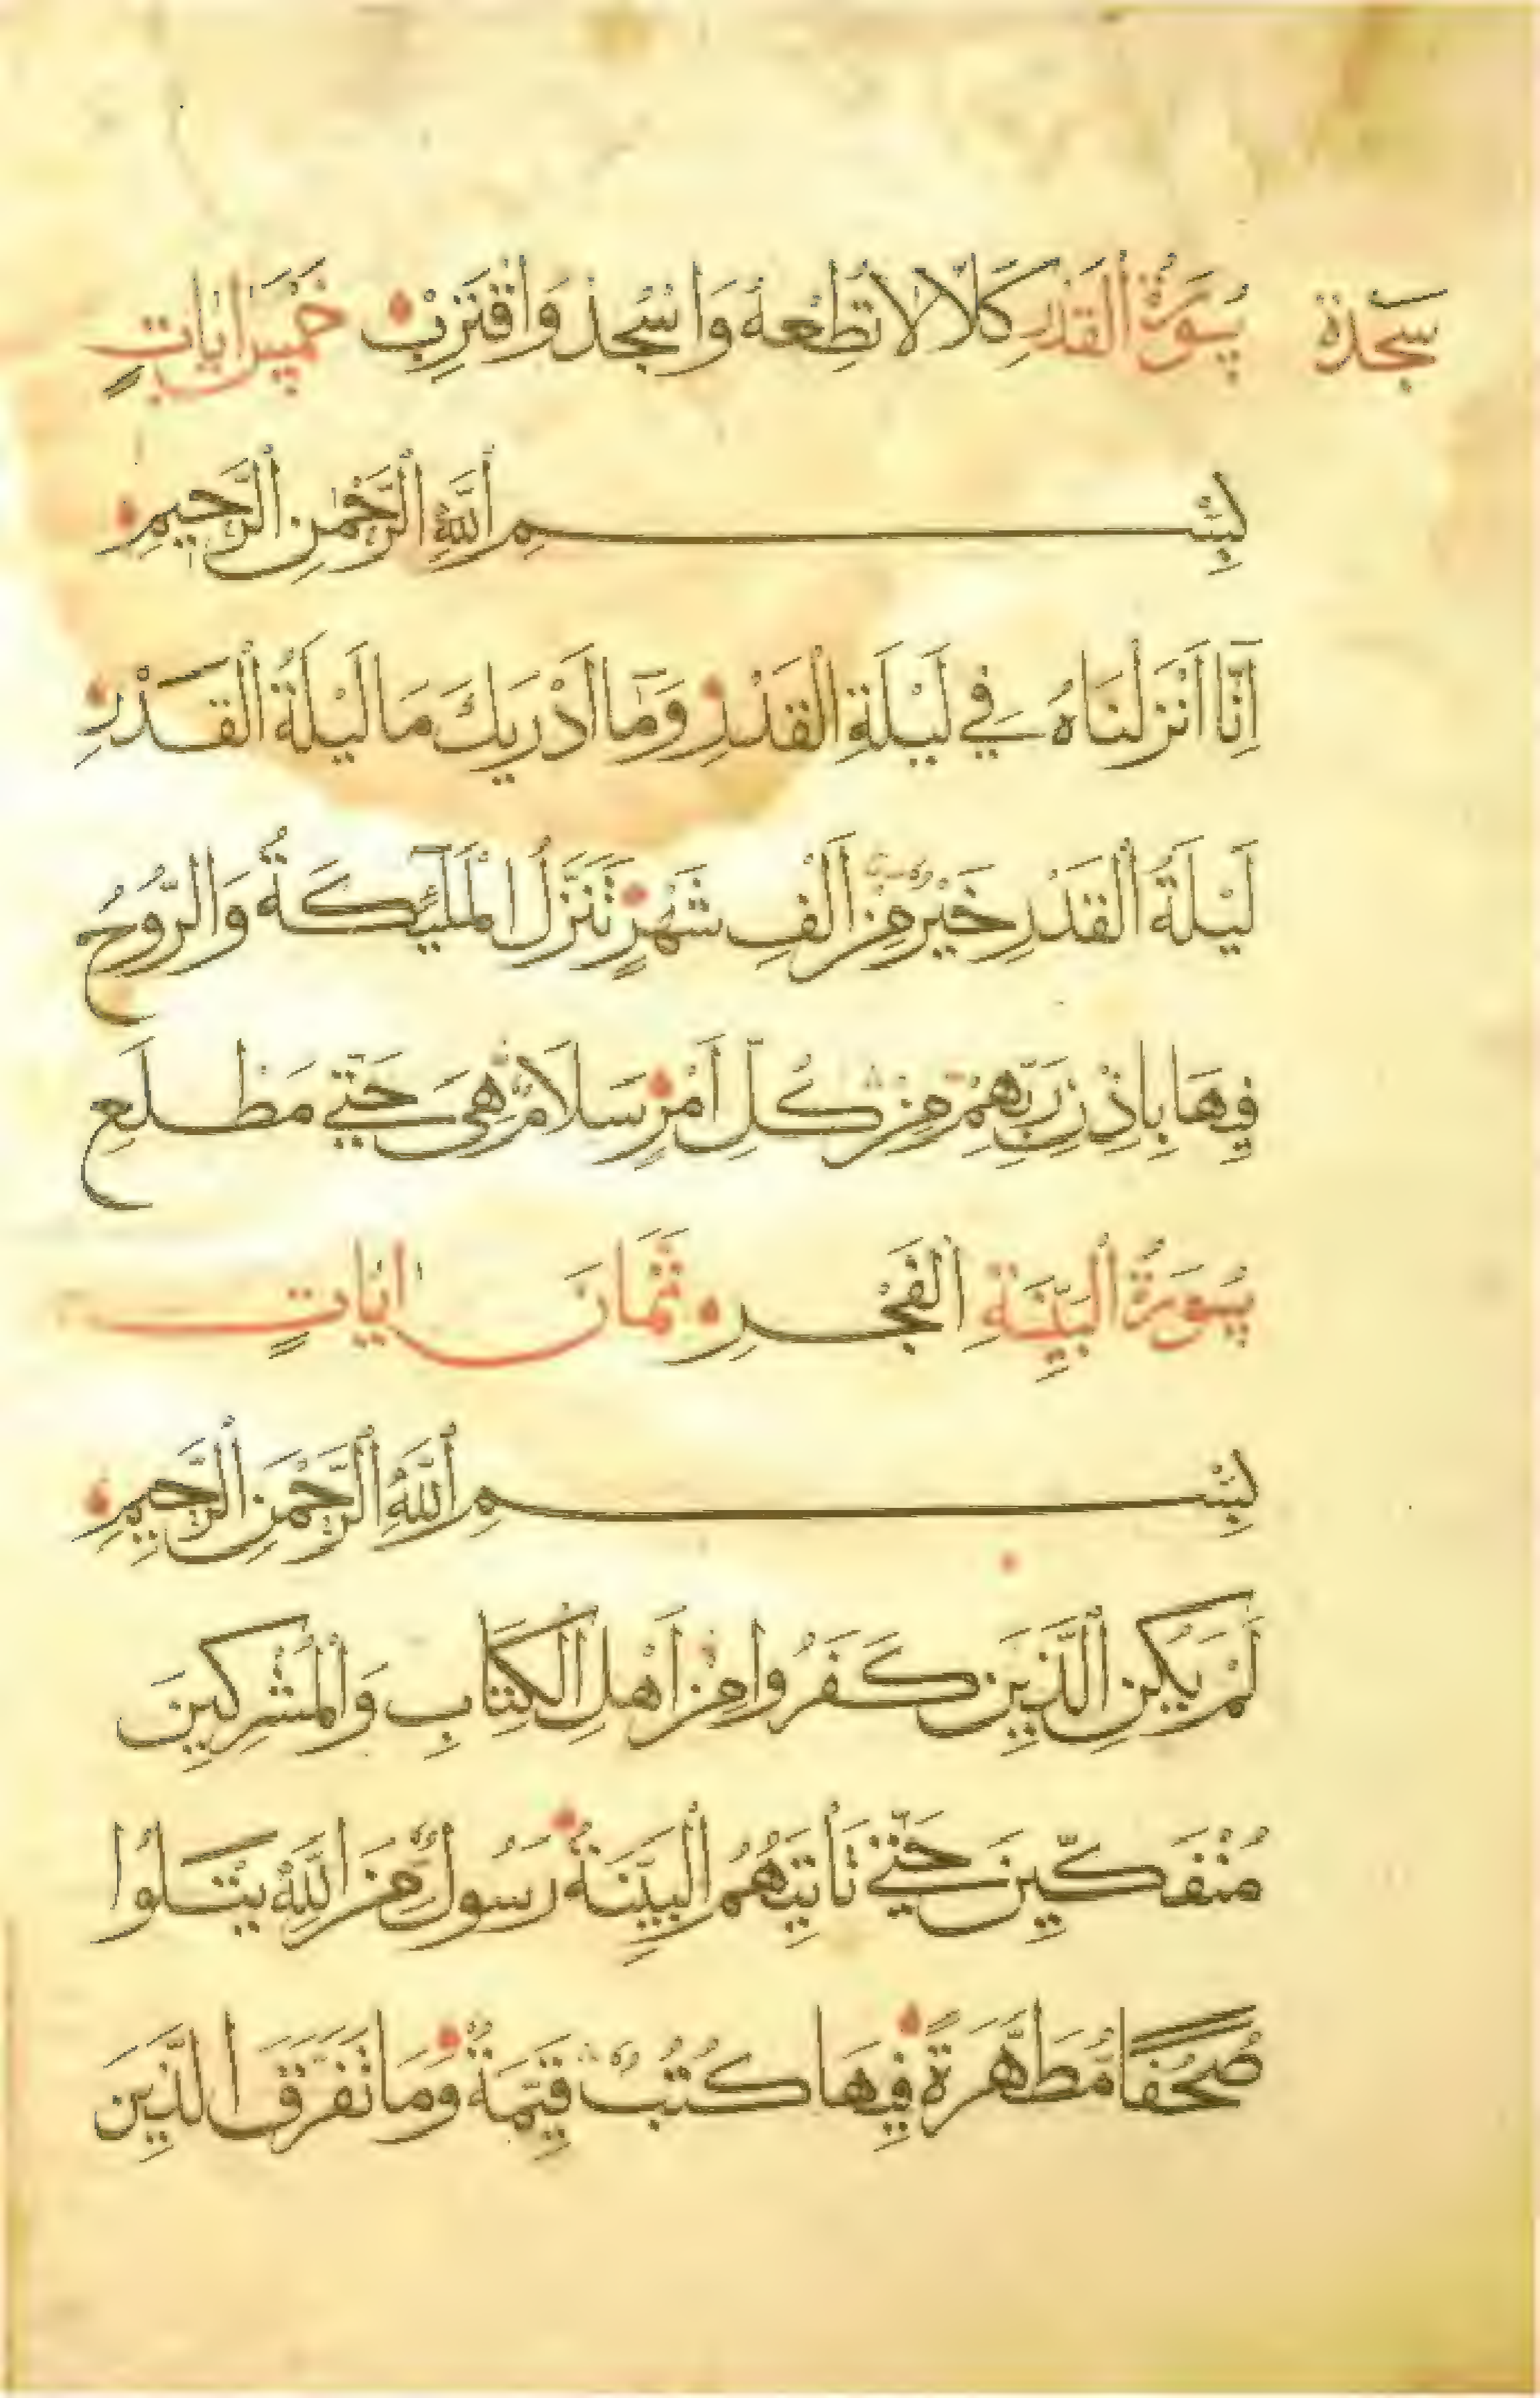 سجدة سُورَةُ الْقَدْرِ كَلَّا لَا تُطِعْهُ وَاسْجُدْ وَاقْتَرِبْ خَمْسُ اٰيَاتٍ
بِسْمِ اللَّهِ الرَّحْمٰنِ الرَّحِيمِ
اِنَّا اَنْزَلْنَاهُ فِي لَيْلَةِ الْقَدْرِ وَمَا اَدْرٰيكَ مَا لَيْلَةُ الْقَدْرِ
لَيْلَةُ الْقَدْرِ خَيْرٌ مِنْ اَلْفِ شَهْرٍ تَنَزَّلُ الْمَلٰٓئِكَةُ وَالرُّوحُ
فِيهَا بِاِذْنِ رَبِّهِمْ مِنْ كُلِّ اَمْرٍ سَلَامٌ هِيَ حَتّٰي مَطْلَعِ
سُورَةُ الْبَيِّنَةِ الْفَجْرِ ثَمَانَ اٰيَاتٍ
بِسْمِ اللَّهِ الرَّحْمٰنِ الرَّحِيمِ
لَمْ يَكُنِ الَّذِينَ كَفَرُوا مِنْ اَهْلِ الْكِتَابِ وَالْمُشْرِكِينَ
مُنْفَكِّينَ حَتّٰي تَاْتِيَهُمُ الْبَيِّنَةُ رَسُولٌ مِنَ اللَّهِ يَتْلُوا
صُحُفًا مُطَهَّرَةً فِيهَا كُتُبٌ قَيِّمَةٌ وَمَا تَفَرَّقَ الَّذِينَ